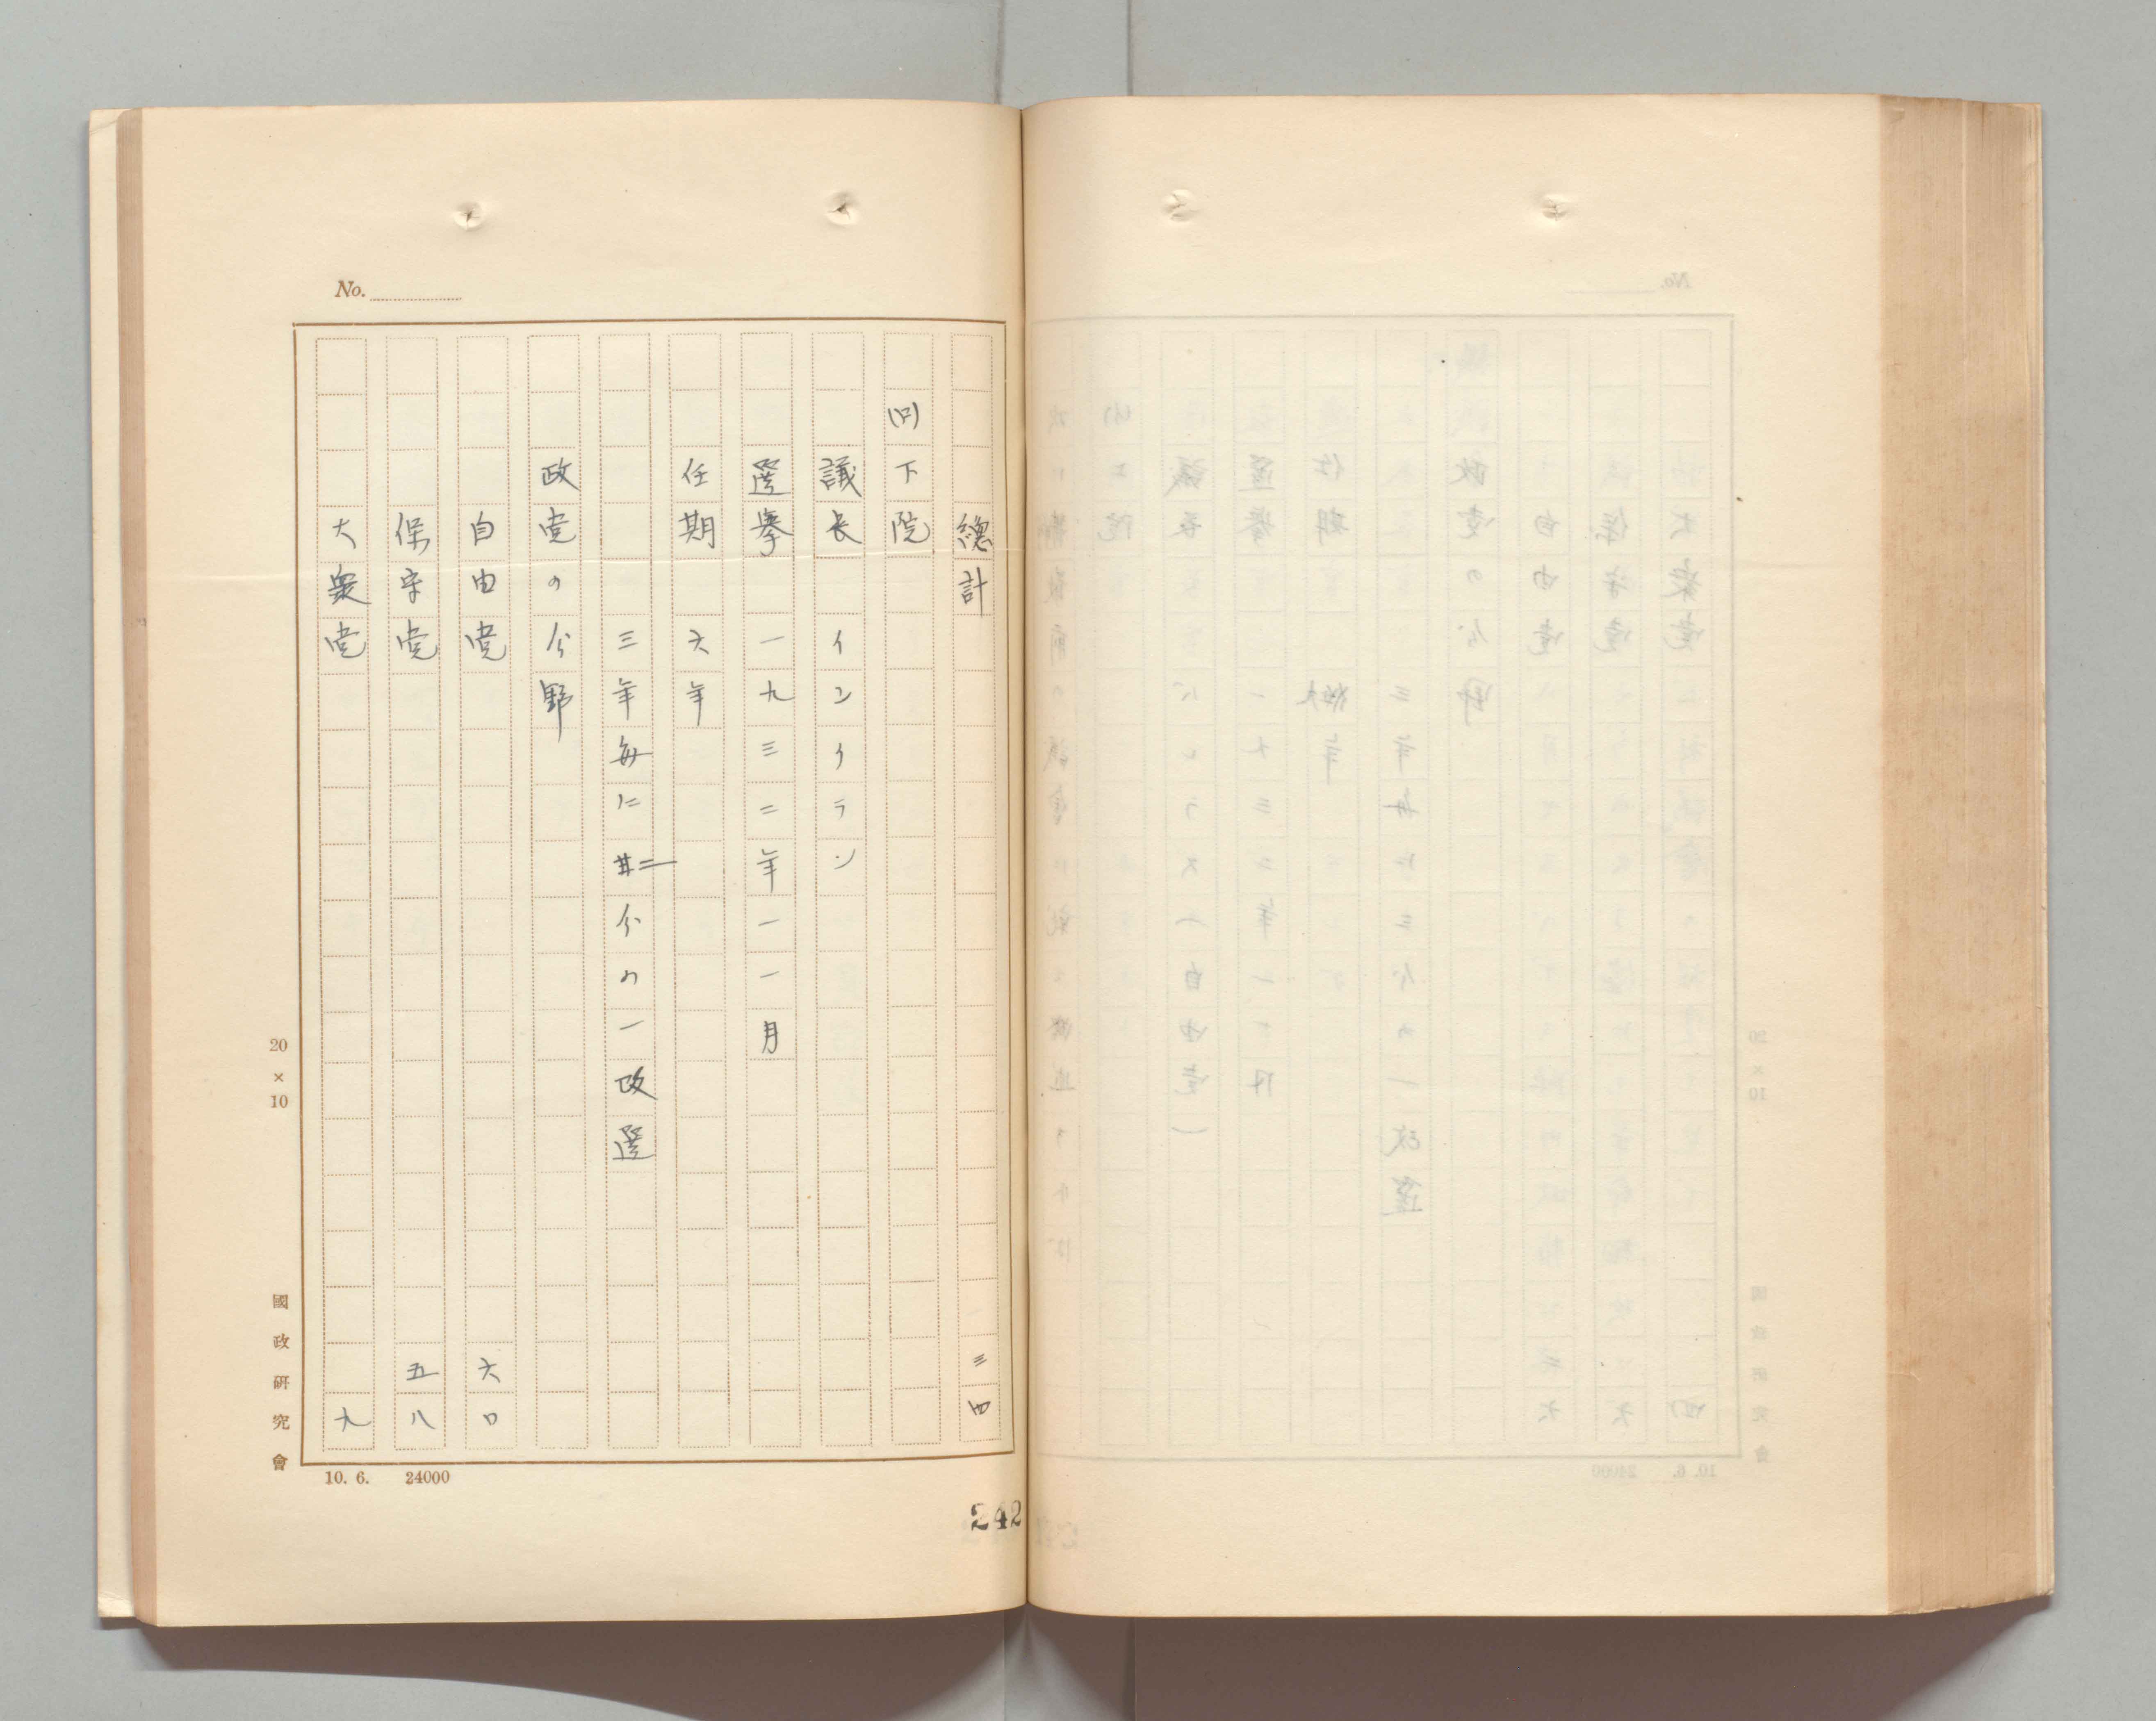 No.
總計 三四
(ロ)下院
議長 インイラン
選挙 一九三二年一一月
任期 六年
三年毎に二分の一改選
政党の分野
自由党 六〇
保守党 五八
大衆党 九
20×10
國政研究會
10. 6. 24000
242